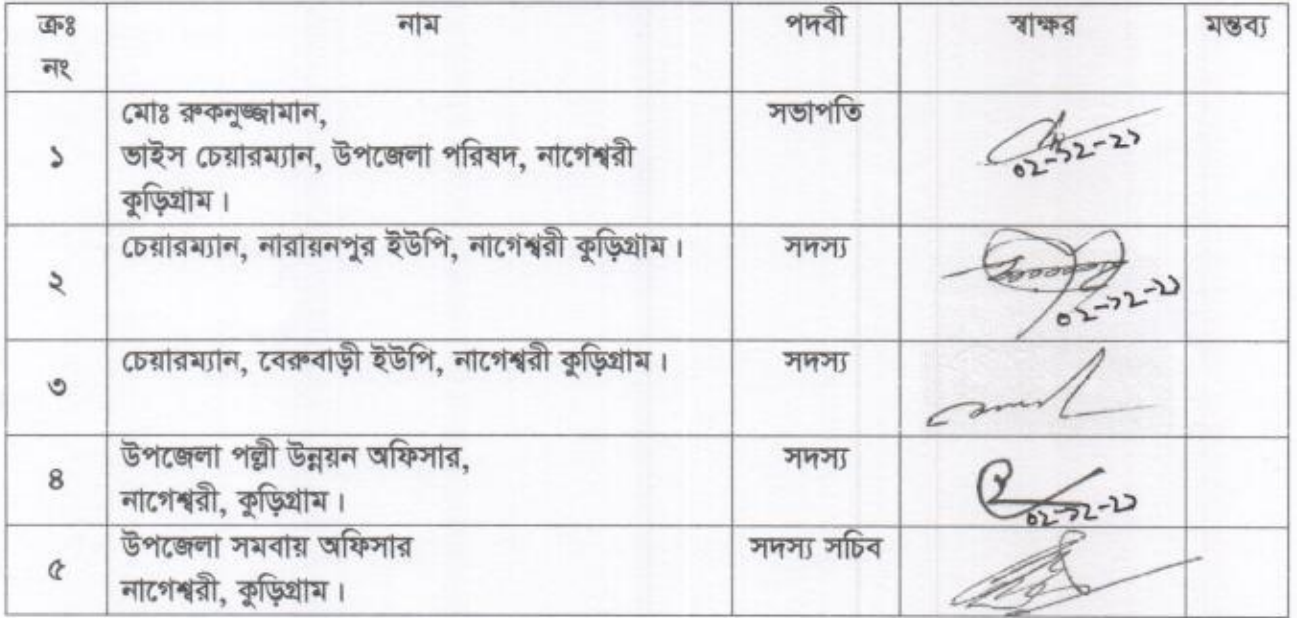 ক্রঃ নং নাম পদবী স্বাক্ষর মন্তব্য
১ মোঃ রুকনুজ্জামান, সভাপতি
ভাইস চেয়ারম্যান, উপজেলা পরিষদ, নাগেশ্বরী
কুড়িগ্রাম।
০২-১২-২১
২ চেয়ারম্যান, নারায়নপুর ইউপি, নাগেশ্বরী কুড়িগ্রাম। সদস্য
০২-১২-২১
৩ চেয়ারম্যান, বেরুবাড়ী ইউপি, নাগেশ্বরী কুড়িগ্রাম। সদস্য
৪ উপজেলা পল্লী উন্নয়ন অফিসার, সদস্য
নাগেশ্বরী, কুড়িগ্রাম।
০২-১২-২১
৫ উপজেলা সমবায় অফিসার সদস্য সচিব
নাগেশ্বরী, কুড়িগ্রাম।